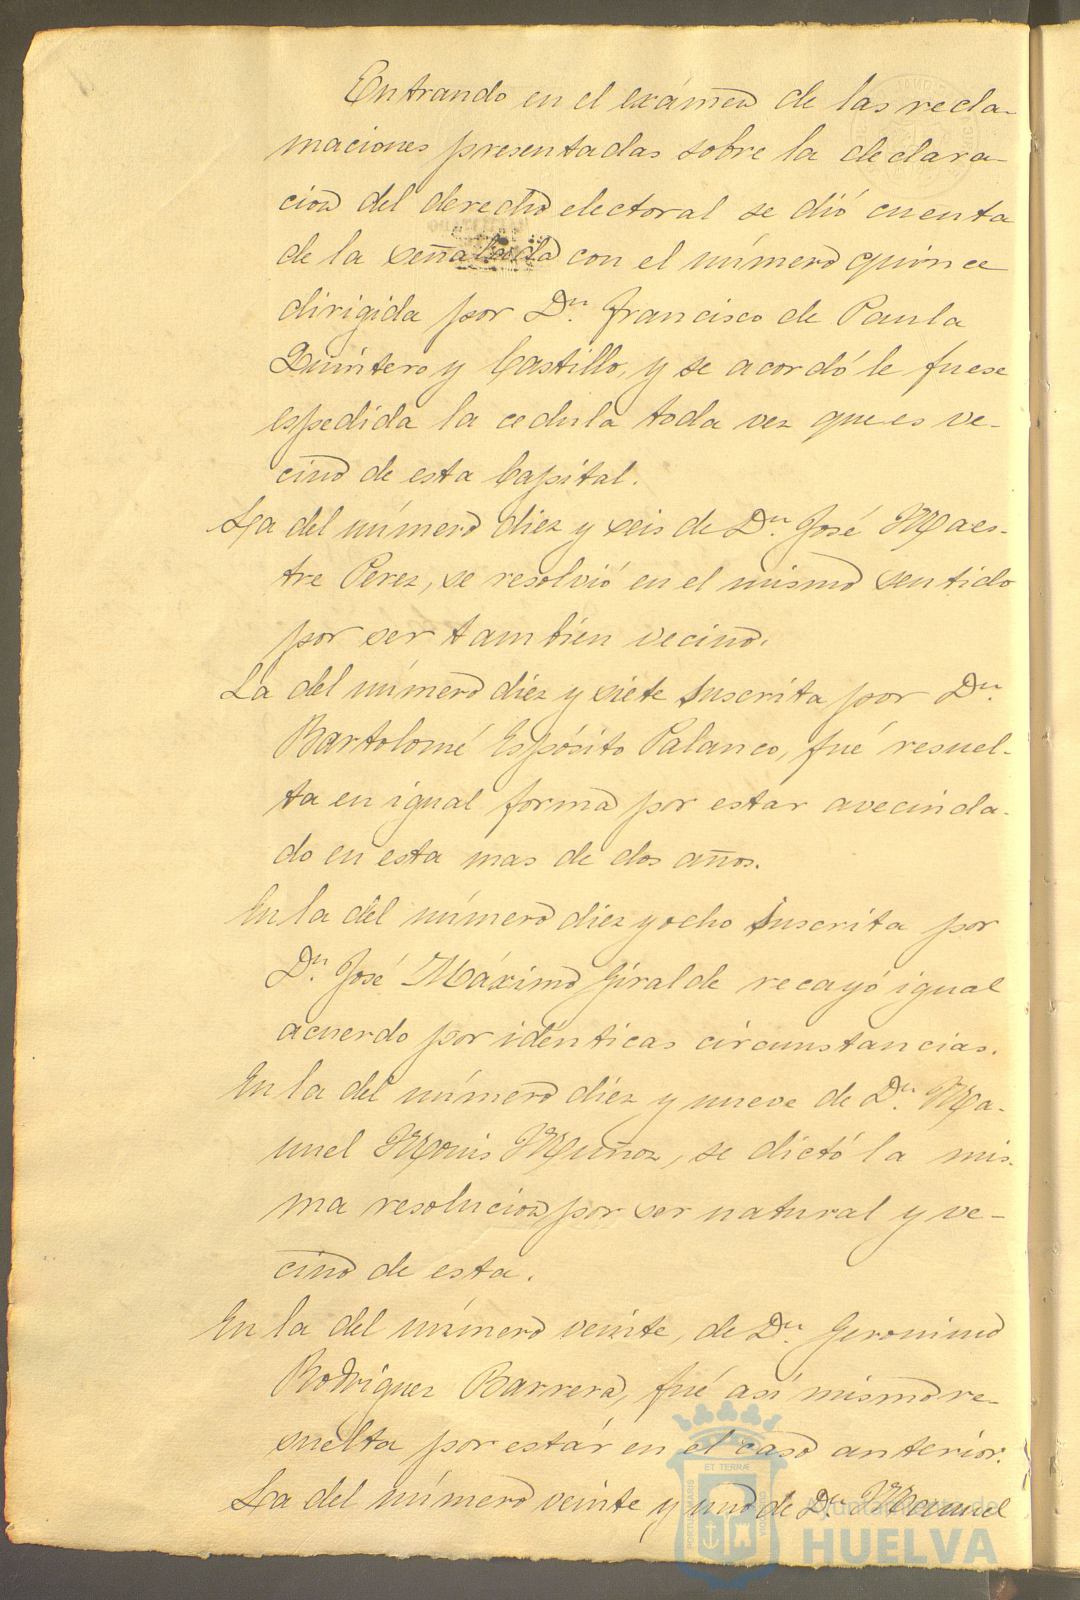 Entrando en el exámen de las recla-
maciones presentadas sobre la declara-
cion del derecho electoral se dió cuenta
de la señalada con el número quince
dirigida por Dn. Francisco de Paula
Quintero y Castillo, y se acordó le fuese
espedida la cedula toda vez que es ve-
cino de esta Capital.
La del número diez y seis de Dn. José Maes-
tre Perez, se resolvió en el mismo sentido
por ser tambien vecino.
La del número diez y siete suscrita por Dn.
Bartolomé Espósito Palanco, fué resuel-
ta en igual forma por estar avecinda-
do en esta mas de dos años.
En la del número diez y ocho suscrita por
Dn. José Máximo Giralde recayó igual
acuerdo por idénticas circunstancias.
En la del número diez y nueve de Dn. Ma-
nuel Muñoz, se dictó la mis-
ma resolucion por ser natural y ve-
cino de esta.
En la del número veinte, de Dn. Geronimo
Rodriguez Barrera, fué asi mismo re-
suelta por estár en el caso anterior.
La del número veinte y uno de Dn. Manuel
ET TERRÆ
Ayuntamiento de
HUELVA